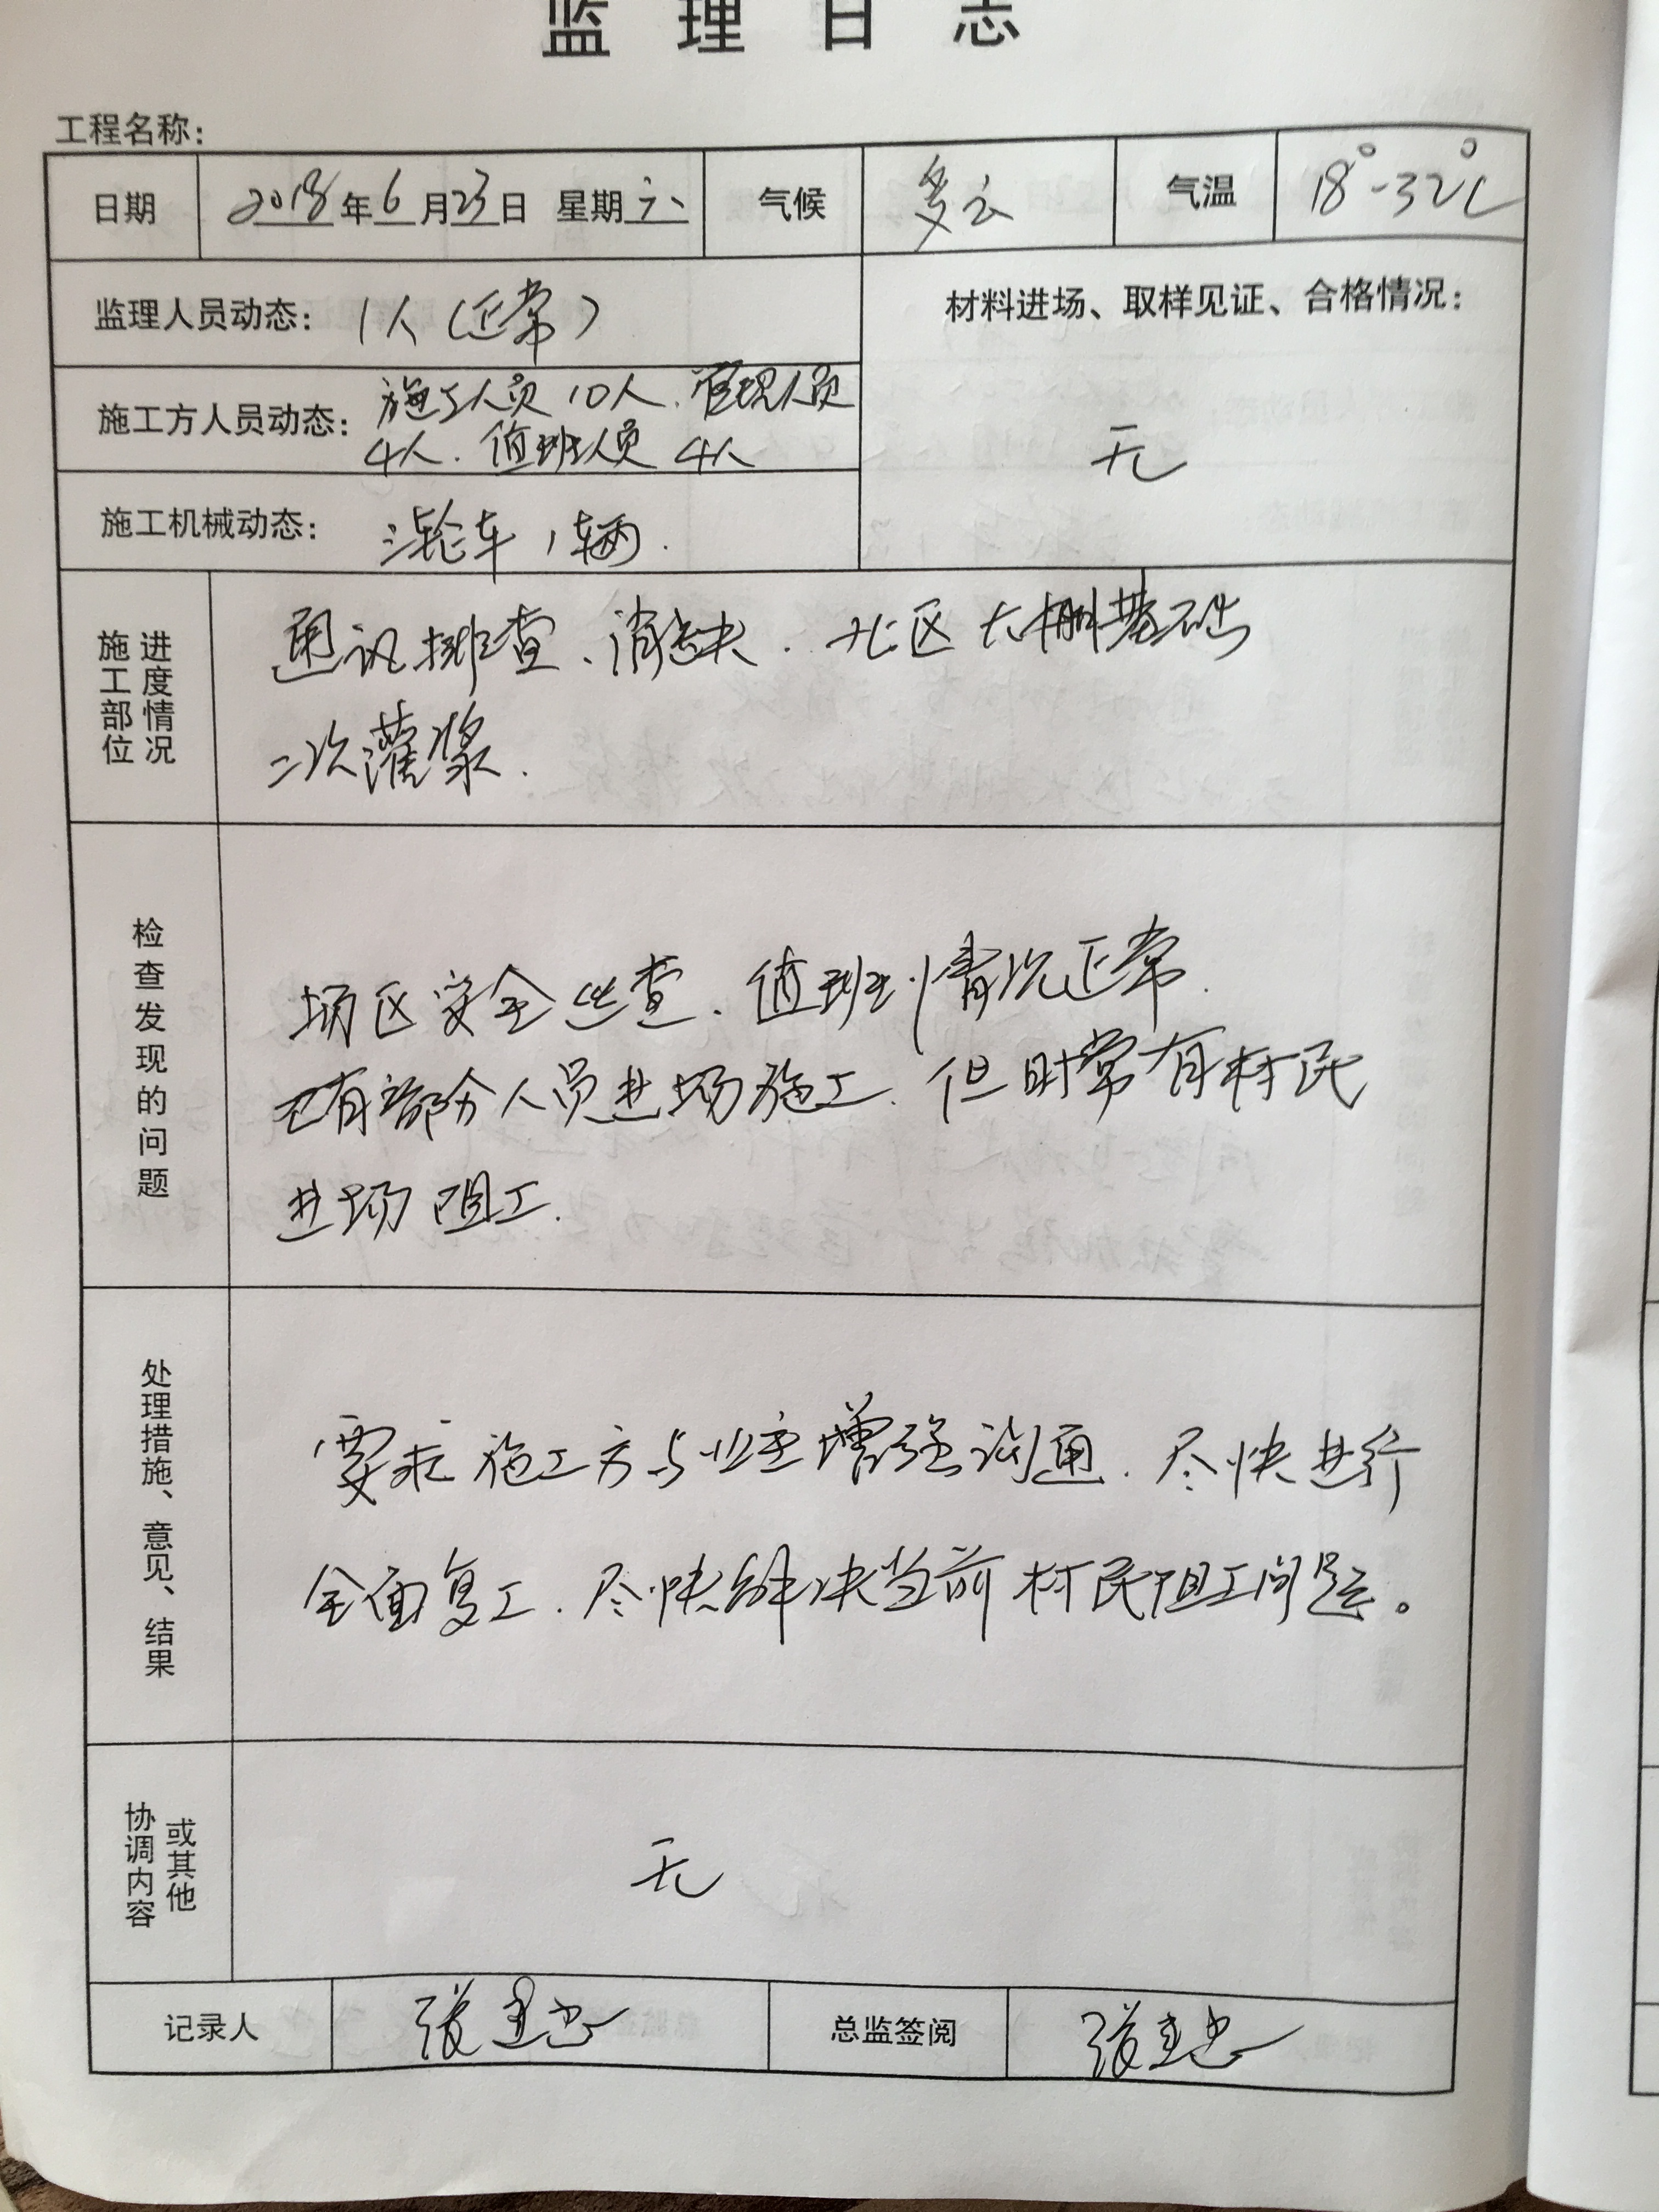 监理日志
工程名称：
日期 2018年6月23日 星期六 气候 多云 气温 18°-32℃
监理人员动态： 1人（正常）
材料进场、取样见证、合格情况：
无
施工方人员动态： 施工人员10人、管理人员
4人、值班人员4人
施工机械动态： 三轮车1辆.
施工部位
进度情况
通讯排查、消缺、北区大棚基础
二次灌浆.
检查发现的问题
场区安全巡查、值班情况正常.
已有部分人员进场施工、但时常有村民
进场阻工.
处理措施、意见、结果
要求施工方与业主增强沟通、尽快进行
全面复工、尽快解决当前村民阻工问题。
协调内容
或其他
无
记录人 张建忠 总监签阅 张建忠